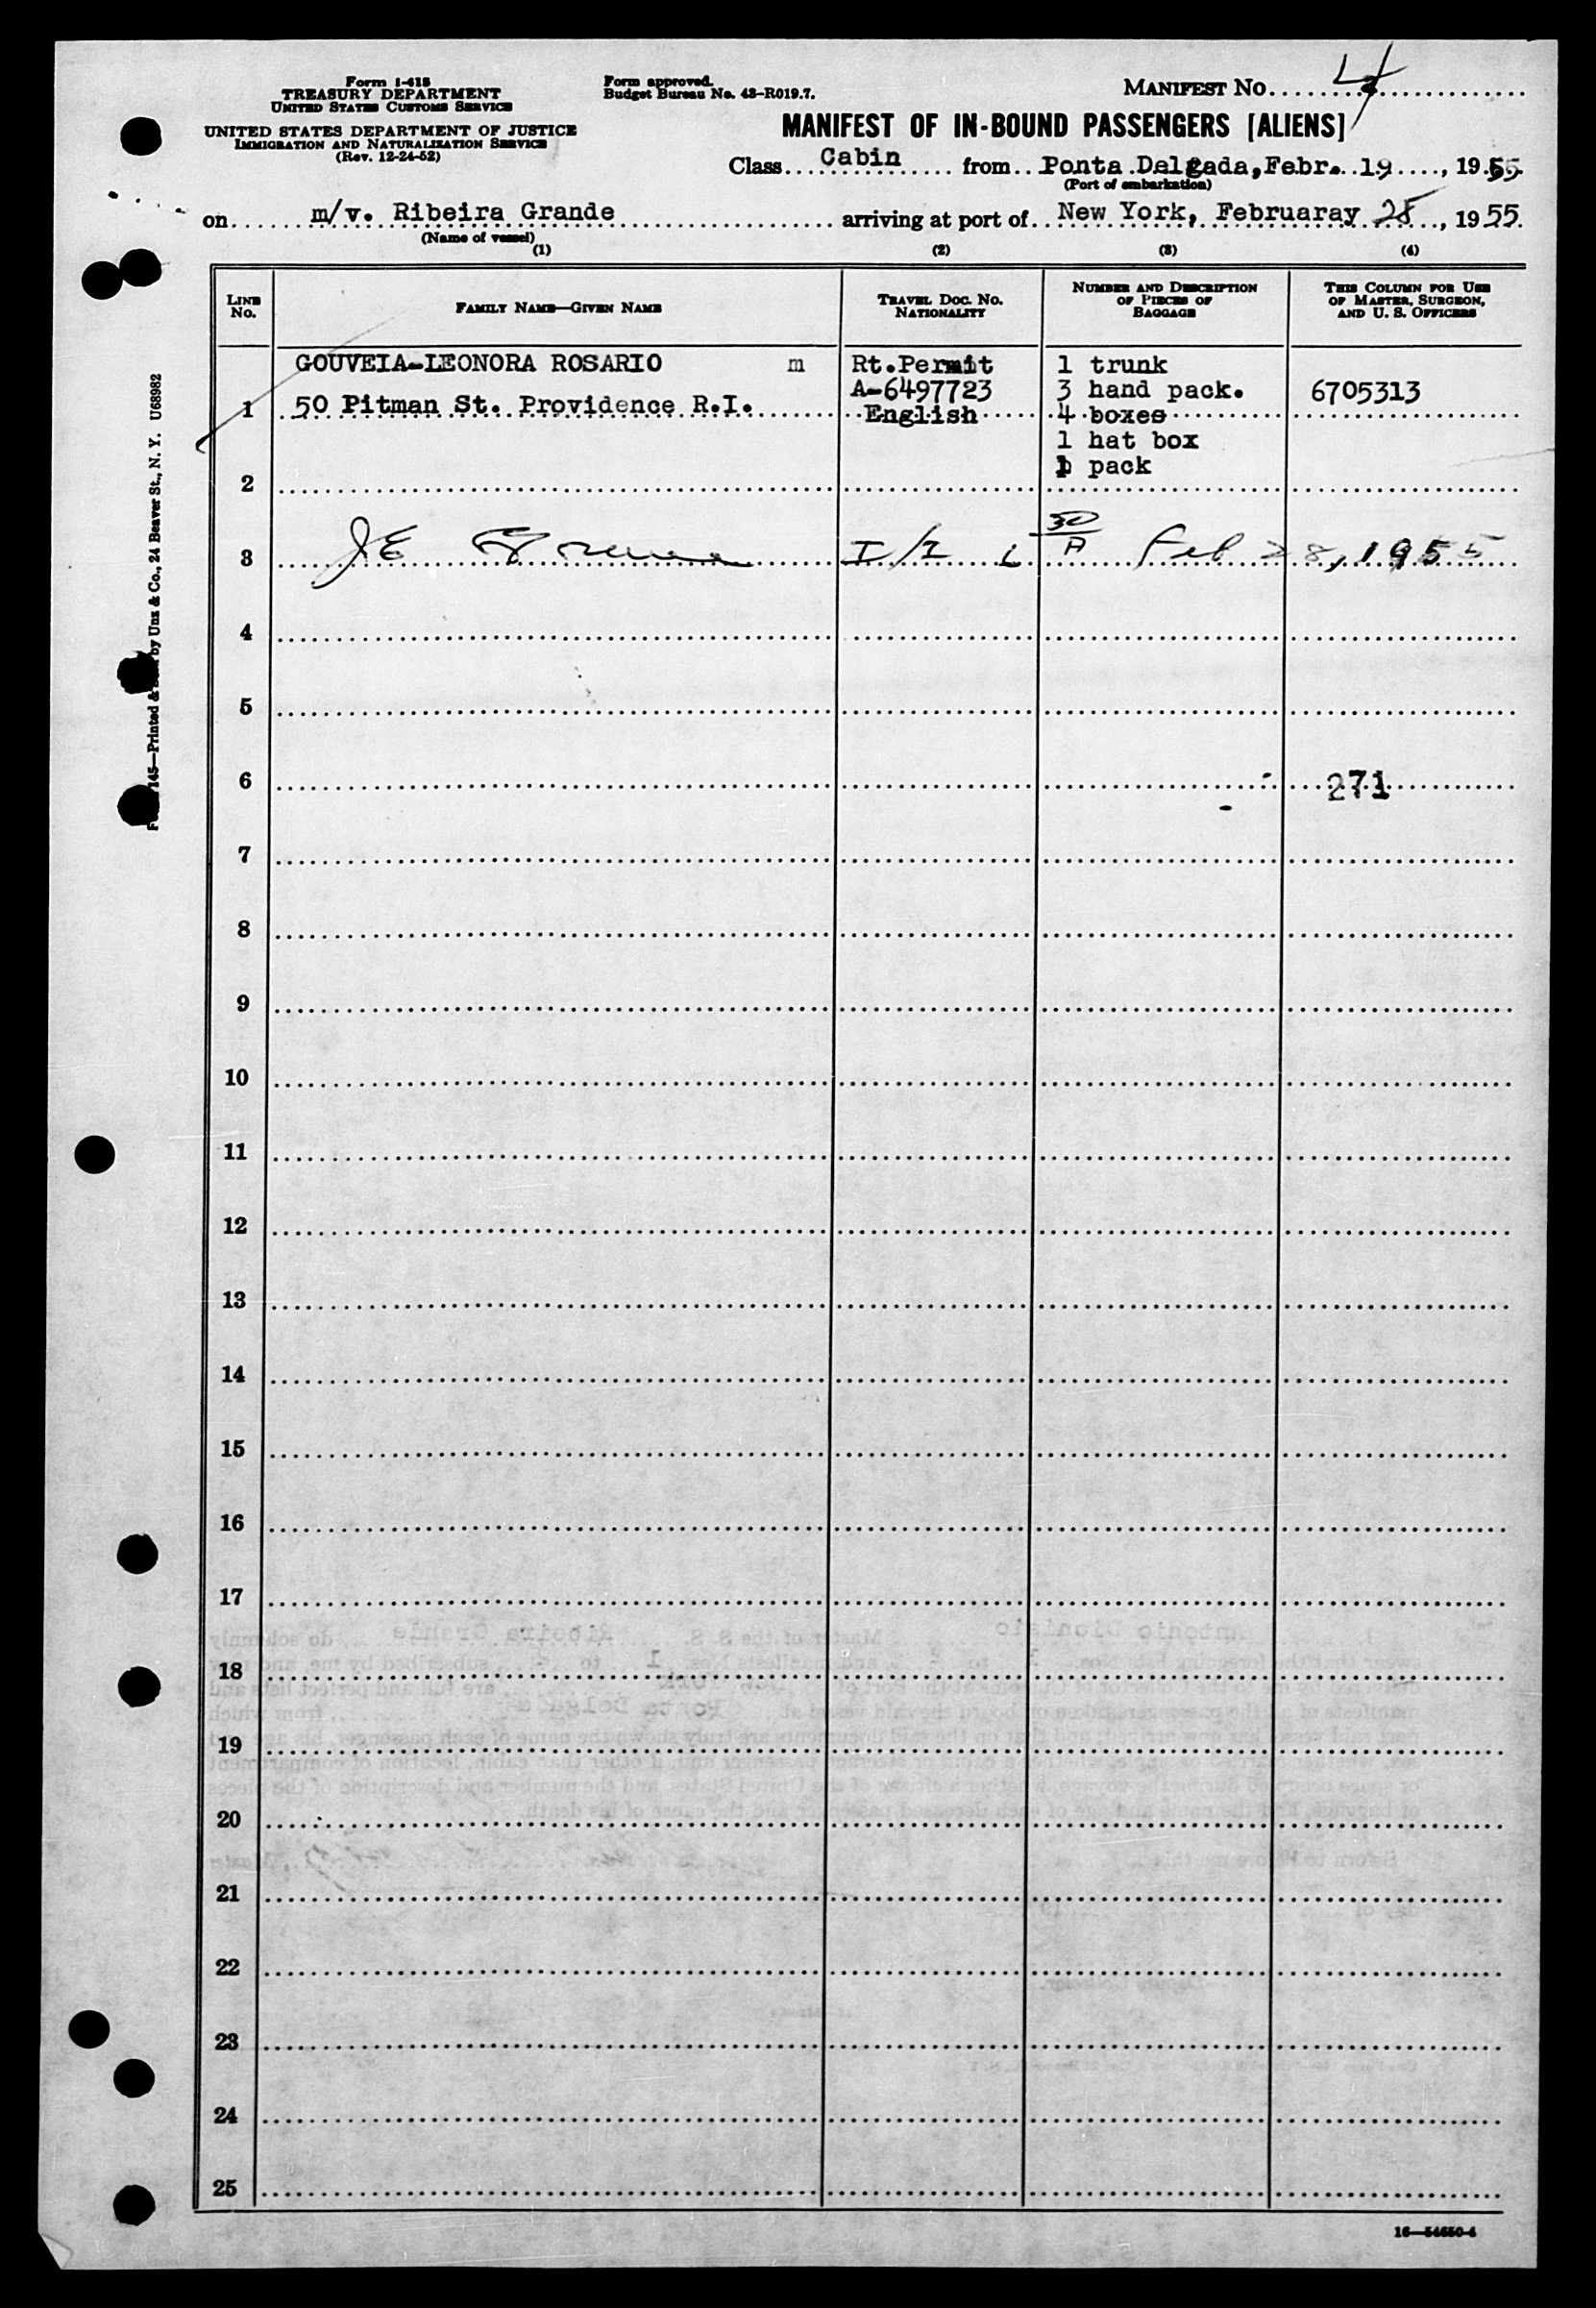 Form I-418
TREASURY DEPARTMENT
UNITED STATES CUSTOMS SERVICE
UNITED STATES DEPARTMENT OF JUSTICE
IMMIGRATION AND NATURALIZATION SERVICE
(Rev. 12-24-52)
Form approved.
Budget Bureau No. 43-R019.7.
MANIFEST NO. 4
MANIFEST OF IN-BOUND PASSENGERS [ALIENS]
Class Cabin from Ponta Delgada, Febr. 19, 1955
(Port of embarkation)
on m/v. Ribeira Grande arriving at port of New York, Februaray 28, 1955.
(Name of vessel)
(1) (2) (3) (4)
LINE NO.
FAMILY NAME—GIVEN NAME
TRAVEL DOC. NO. NATIONALITY
NUMBER AND DESCRIPTION OF PIECES OF BAGGAGE
THIS COLUMN FOR USE OF MASTER, SURGEON, AND U. S. OFFICERS
GOUVEIA-LEONORA ROSARIO m Rt.Permit 1 trunk
A-6497723 3 hand pack. 6705313
1 50 Pitman St. Providence R.I. English 4 boxes
1 hat box
pack
2
3 JE I/I Feb 28, 1955
4
5
6 271
7
8
9
10
11
12
13
14
15
16
17
18
19
20
21
22
23
24
25
16—54650-4
145—Printed & by Unz & Co., 24 Beaver St., N. Y. U68982